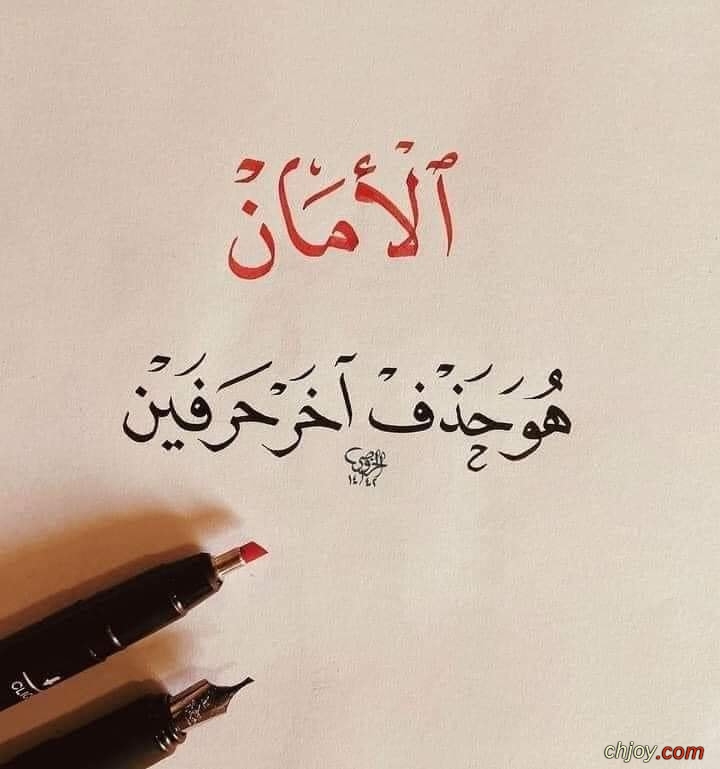 ٱلْأَمَانْ
هُوَ حَذْف آخَرْ حَرفَيْن
١٤٤٢
CLIC
chjoy.com